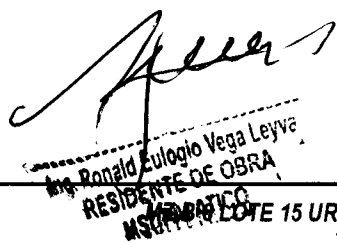 Ing. Ronald Eulogio Vega Leyva
RESIDENTE DE OBRA
LOTE 15 UR